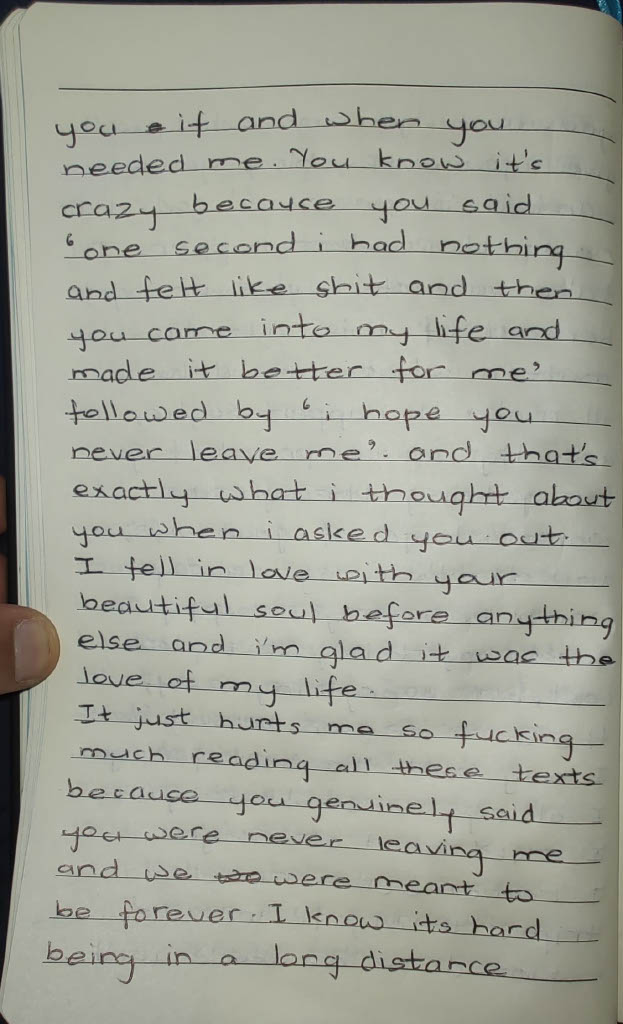 you if and when you
needed me. You know it's
crazy because you said
'one second i had nothing
and felt like shit and then
you came into my life and
made it better for me'
followed by 'i hope you
never leave me'. and that's
exactly what i thought about
you when i asked you out.
I fell in love with your
beautiful soul before anything
else and i'm glad it was the
love of my life.
It just hurts me so fucking
much reading all these texts
because you genuinely said
you were never leaving me
and we were meant to
be forever. I know its hard
being in a long distance